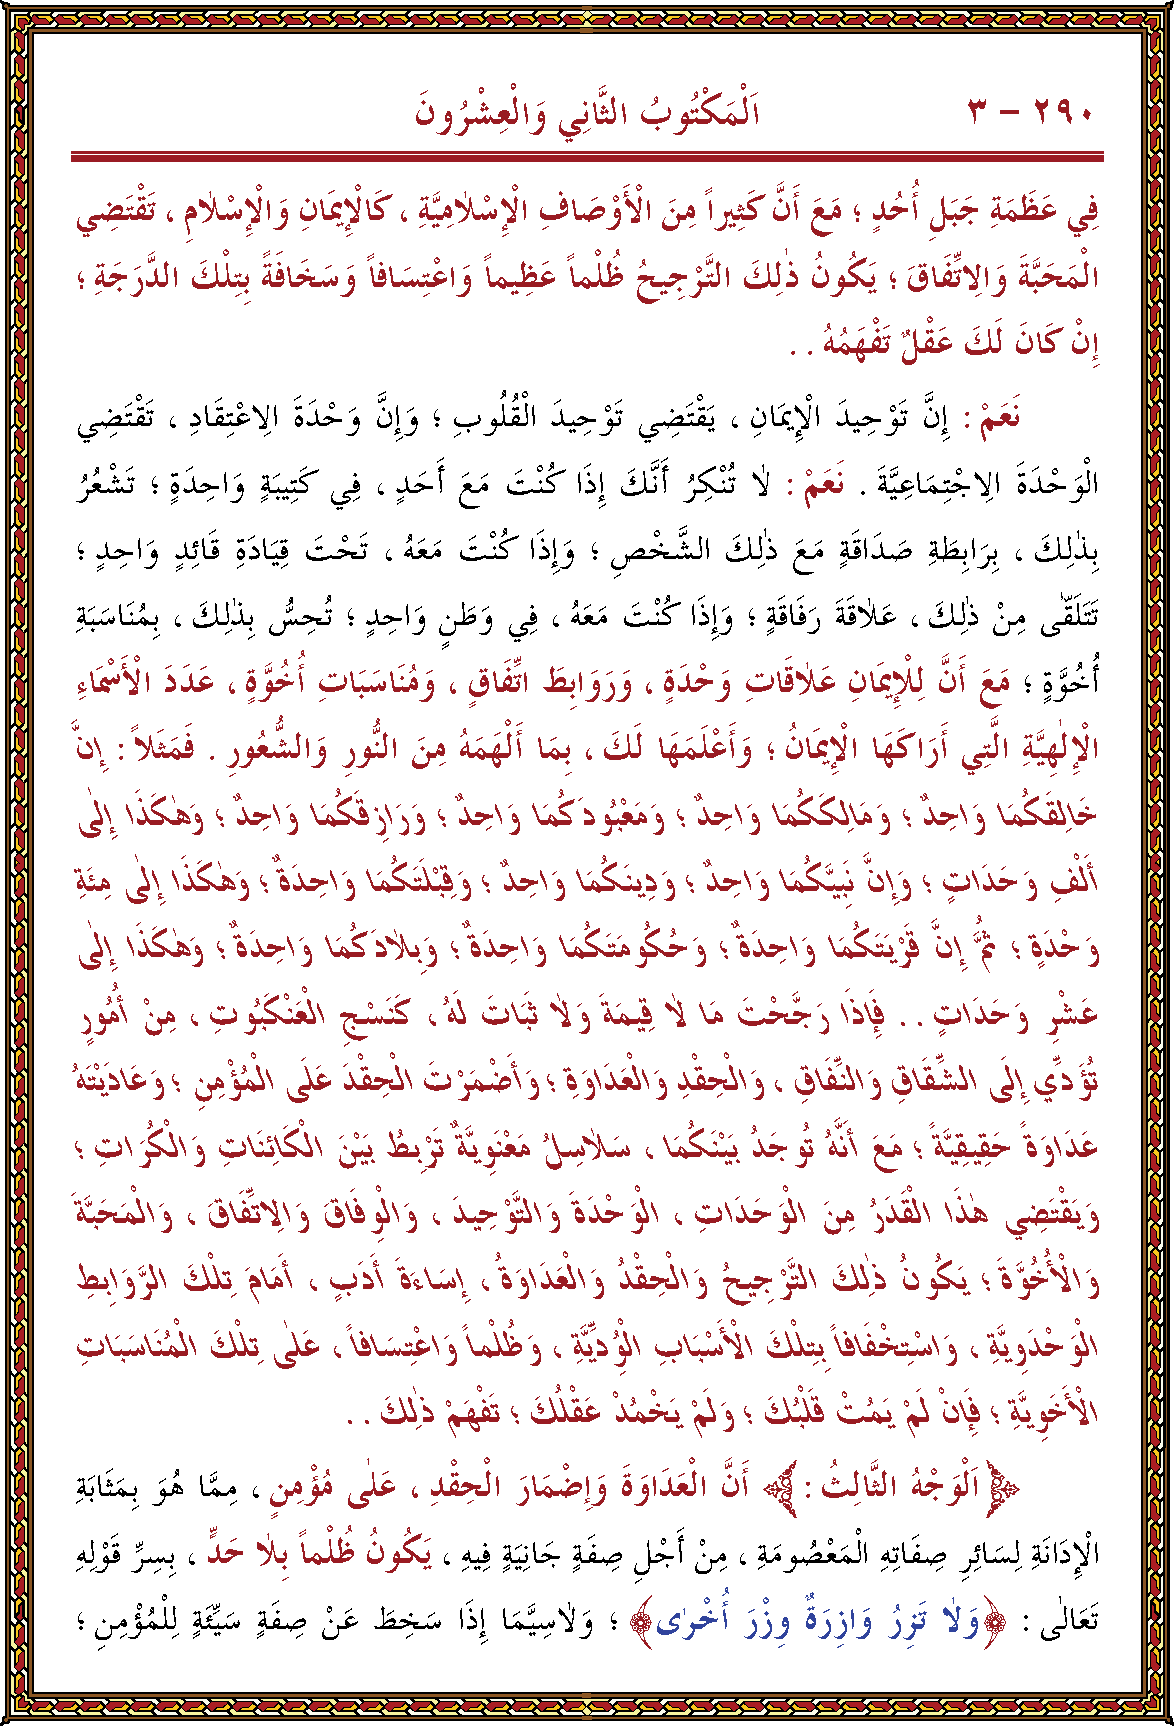 ٢٩٠ - ٣ اَلْمَكْتُوبُ الثَّانِي وَالْعِشْرُونَ
فِي عَظَمَةِ جَبَلِ أُحُدٍ ؛ مَعَ أَنَّ كَثِيراً مِنَ الْأَوْصَافِ الْإِسْلَامِيَّةِ ، كَالْإِيمَانِ وَالْإِسْلَامِ ، تَقْتَضِي
الْمَحَبَّةَ وَالِاتِّفَاقَ ؛ يَكُونُ ذٰلِكَ التَّرْجِيحُ ظُلْماً عَظِيماً وَاعْتِسَافاً وَسَخَافَةً بِتِلْكَ الدَّرَجَةِ ؛
إِنْ كَانَ لَكَ عَقْلٌ تَفْهَمُهُ . .
نَعَمْ : إِنَّ تَوْحِيدَ الْإِيمَانِ ، يَقْتَضِي تَوْحِيدَ الْقُلُوبِ ؛ وَإِنَّ وَحْدَةَ الِاعْتِقَادِ ، تَقْتَضِي
الْوَحْدَةَ الِاجْتِمَاعِيَّةَ . نَعَمْ : لَا تُنْكِرُ أَنَّكَ إِذَا كُنْتَ مَعَ أَحَدٍ ، فِي كَتِيبَةٍ وَاحِدَةٍ ؛ تَشْعُرُ
بِذٰلِكَ ، بِرَابِطَةِ صَدَاقَةٍ مَعَ ذٰلِكَ الشَّخْصِ ؛ وَإِذَا كُنْتَ مَعَهُ ، تَحْتَ قِيَادَةِ قَائِدٍ وَاحِدٍ ؛
تَتَلَقّٰى مِنْ ذٰلِكَ ، عَلَاقَةَ رَفَاقَةٍ ؛ وَإِذَا كُنْتَ مَعَهُ ، فِي وَطَنٍ وَاحِدٍ ؛ تُحِسُّ بِذٰلِكَ ، بِمُنَاسَبَةِ
أُخُوَّةٍ ؛ مَعَ أَنَّ لِلْإِيمَانِ عَلَاقَاتِ وَحْدَةٍ ، وَرَوَابِطَ اتِّفَاقٍ ، وَمُنَاسَبَاتِ أُخُوَّةٍ ، عَدَدَ الْأَسْمَاءِ
الْإِلٰهِيَّةِ الَّتِي أَرَاكَهَا الْإِيمَانُ ؛ وَأَعْلَمَهَا لَكَ ، بِمَا أَلْهَمَهُ مِنَ النُّورِ وَالشُّعُورِ . فَمَثَلاً : إِنَّ
خَالِقَكُمَا وَاحِدٌ ؛ وَمَالِكَكُمَا وَاحِدٌ ؛ وَمَعْبُودَكُمَا وَاحِدٌ ؛ وَرَازِقَكُمَا وَاحِدٌ ؛ وَهٰكَذَا إِلٰى
أَلْفِ وَحَدَاتٍ ؛ وَإِنَّ نَبِيَّكُمَا وَاحِدٌ ؛ وَدِينَكُمَا وَاحِدٌ ؛ وَقِبْلَتَكُمَا وَاحِدَةٌ ؛ وَهٰكَذَا إِلٰى مِئَةِ
وَحْدَةٍ ؛ ثُمَّ إِنَّ قَرْيَتَكُمَا وَاحِدَةٌ ؛ وَحُكُومَتَكُمَا وَاحِدَةٌ ؛ وَبِلَادَكُمَا وَاحِدَةٌ ؛ وَهٰكَذَا إِلٰى
عَشْرِ وَحَدَاتٍ . . فَإِذَا رَجَّحْتَ مَا لَا قِيمَةَ وَلَا ثَبَاتَ لَهُ ، كَنَسْجِ الْعَنْكَبُوتِ ، مِنْ أُمُورٍ
تُؤَدِّي إِلَى الشِّقَاقِ وَالنِّفَاقِ ، وَالْحِقْدِ وَالْعَدَاوَةِ ؛ وَأَضْمَرْتَ الْحِقْدَ عَلَى الْمُؤْمِنِ ؛ وَعَادَيْتَهُ
عَدَاوَةً حَقِيقِيَّةً ؛ مَعَ أَنَّهُ تُوجَدُ بَيْنَكُمَا ، سَلَاسِلُ مَعْنَوِيَّةٌ تَرْبِطُ بَيْنَ الْكَائِنَاتِ وَالْكُرَاتِ ؛
وَيَقْتَضِي هٰذَا الْقَدْرُ مِنَ الْوَحَدَاتِ ، الْوَحْدَةَ وَالتَّوْحِيدَ ، وَالْوِفَاقَ وَالِاتِّفَاقَ ، وَالْمَحَبَّةَ
وَالْأُخُوَّةَ ؛ يَكُونُ ذٰلِكَ التَّرْجِيحُ وَالْحِقْدُ وَالْعَدَاوَةُ ، إِسَاءَةَ أَدَبٍ ، أَمَامَ تِلْكَ الرَّوَابِطِ
الْوَحْدَوِيَّةِ ، وَاسْتِخْفَافاً بِتِلْكَ الْأَسْبَابِ الْوُدِّيَّةِ ، وَظُلْماً وَاعْتِسَافاً ، عَلٰى تِلْكَ الْمُنَاسَبَاتِ
الْأَخَوِيَّةِ ؛ فَإِنْ لَمْ يَمُتْ قَلْبُكَ ؛ وَلَمْ يَخْمُدْ عَقْلُكَ ؛ تَفْهَمْ ذٰلِكَ . .
﴿اَلْوَجْهُ الثَّالِثُ :﴾ أَنَّ الْعَدَاوَةَ وَإِضْمَارَ الْحِقْدِ ، عَلٰى مُؤْمِنٍ ، مِمَّا هُوَ بِمَثَابَةِ
الْإِدَانَةِ لِسَائِرِ صِفَاتِهِ الْمَعْصُومَةِ ، مِنْ أَجْلِ صِفَةٍ جَانِيَةٍ فِيهِ ، يَكُونُ ظُلْماً بِلَا حَدٍّ ، بِسِرِّ قَوْلِهِ
تَعَالٰى : ﴿وَلَا تَزِرُ وَازِرَةٌ وِزْرَ أُخْرٰى﴾ ؛ وَلَاسِيَّمَا إِذَا سَخِطَ عَنْ صِفَةٍ سَيِّئَةٍ لِلْمُؤْمِنِ ؛